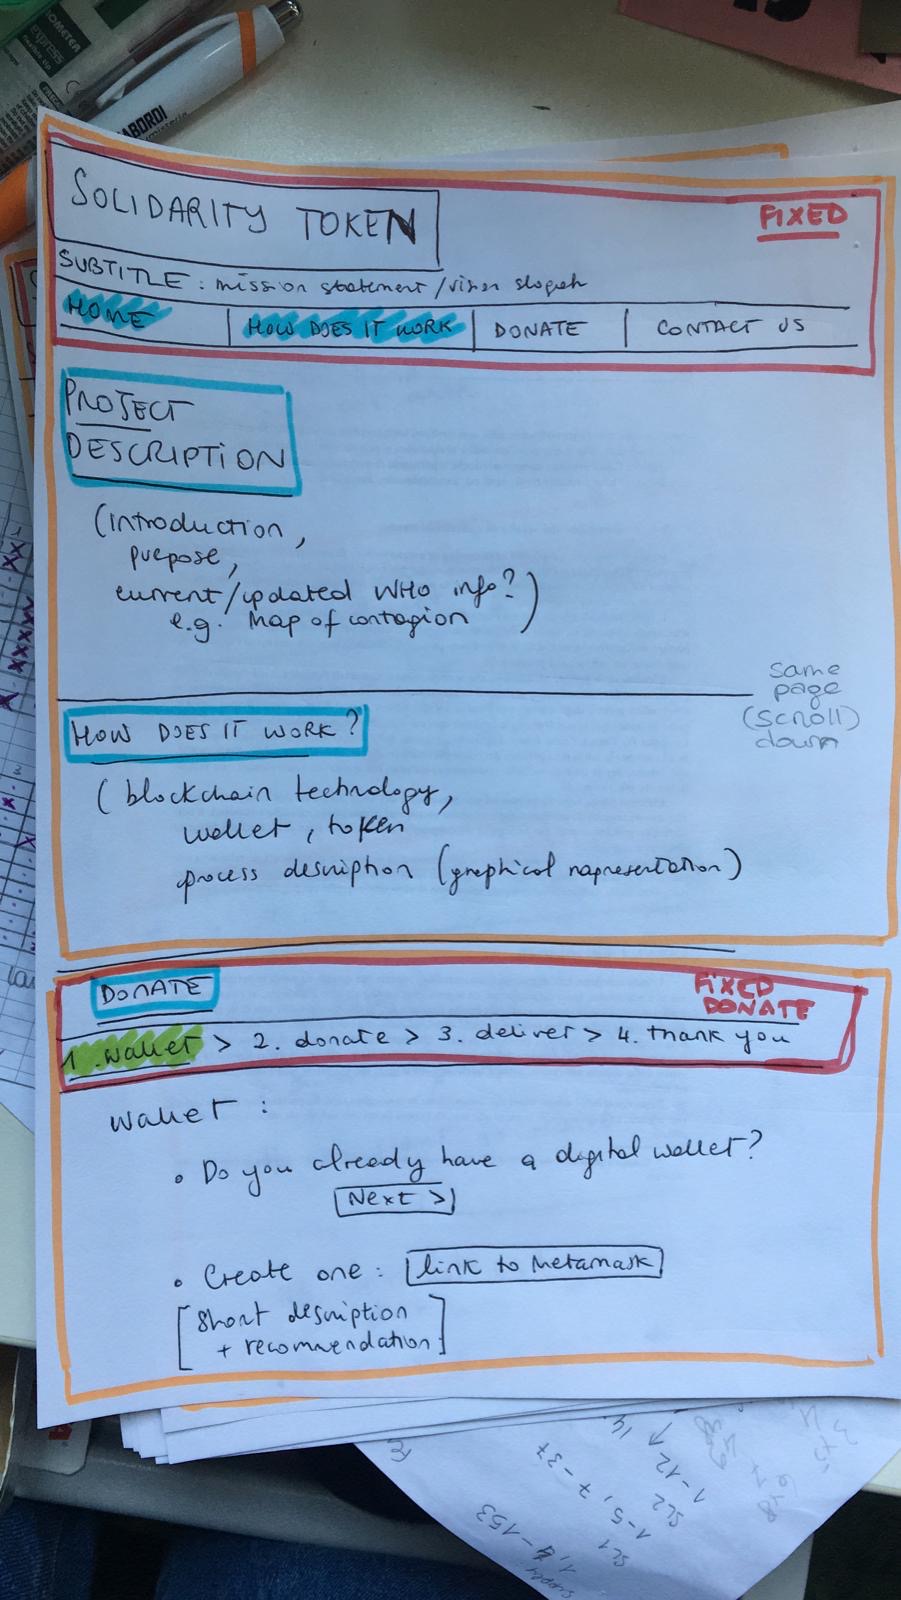 OMETER
express
ABORDI
SOLIDARITY TOKEN
FIXED
SUBTITLE : mission statement / vision
HOME
HOW DOES IT WORK
DONATE
CONTACT US
PROJECT
DESCRIPTION
(introduction,
purpose,
current/updated WHO info?)
e.g. Map of contagion
same
page
(scroll)
down
HOW DOES IT WORK?
(blockchain technology,
wallet, token
process description (graphical rapresentation)
DONATE
FIXED
DONATE
1. wallet > 2. donate > 3. deliver > 4. thank you
wallet :
• Do you already have a digital wallet?
Next >
• Create one : link to Metamask
[short description
+ recommendation]
14
1-12
SC2
7-37
1-5,
SC1
1,4-153
supply